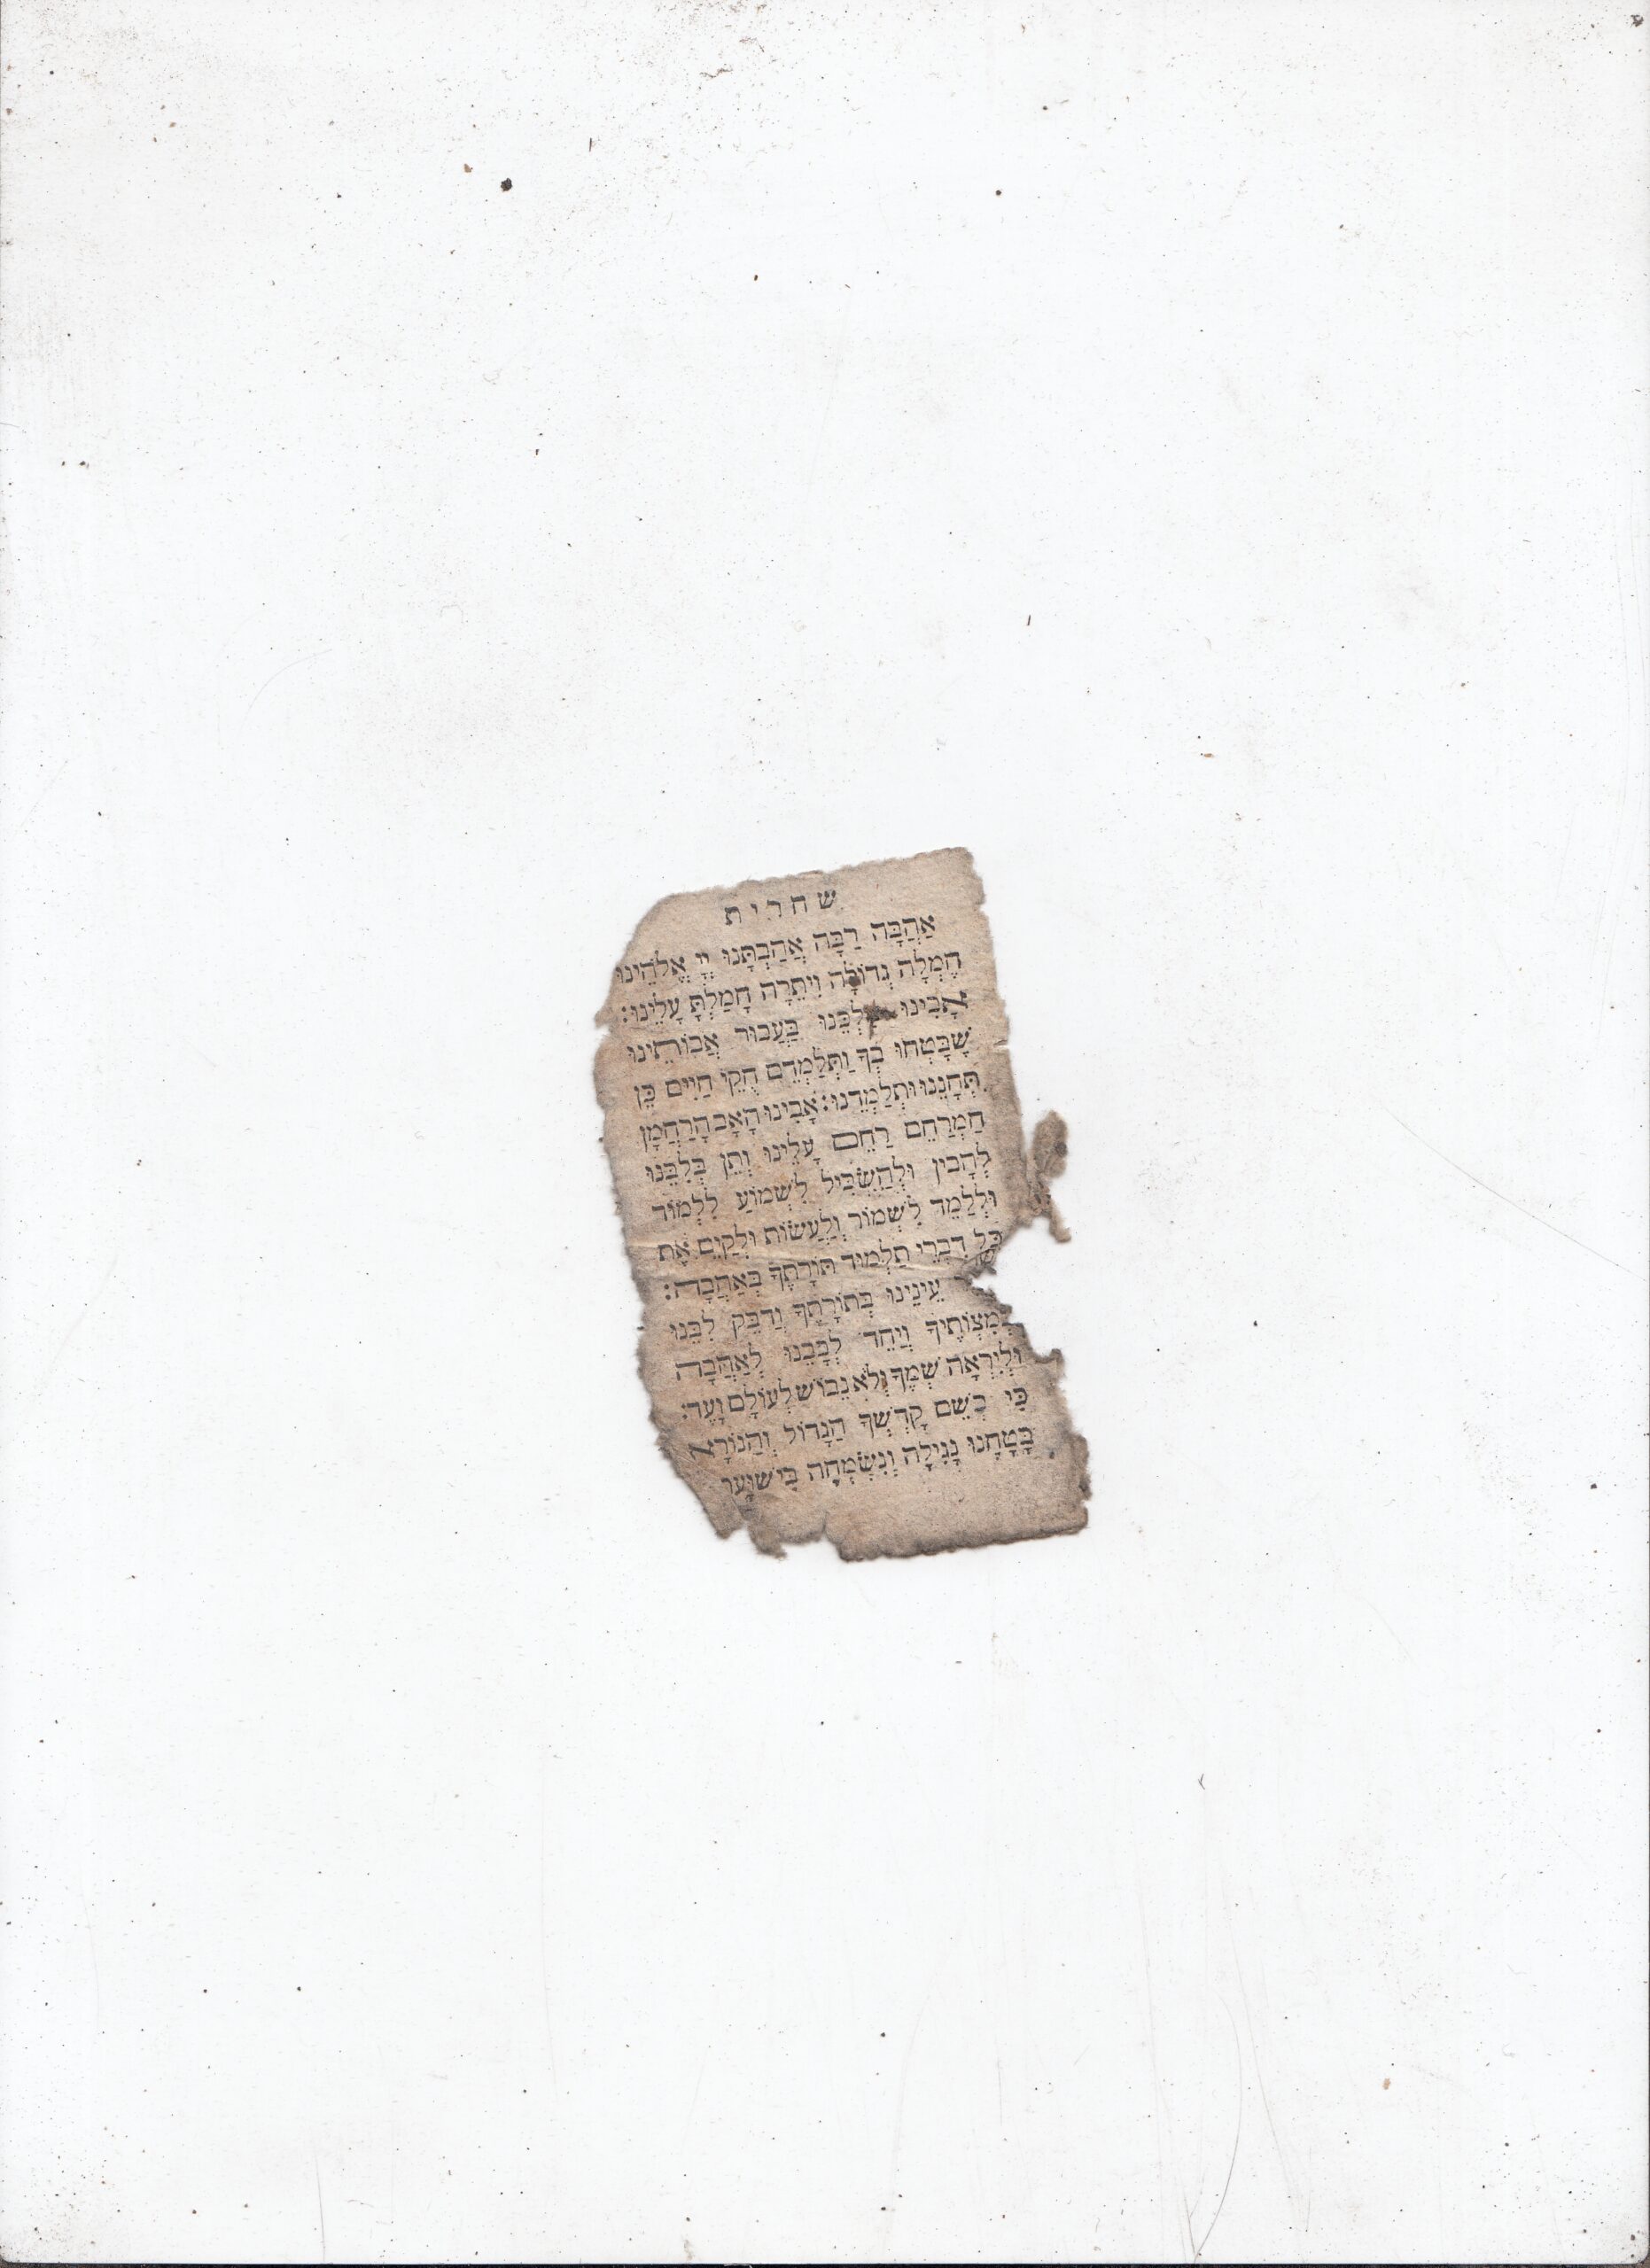 שחרית
אַהֲבָּה רַבָּה אֲהַבְתָּנוּ יְיָ אֱלֹהֵינוּ
חֶמְלָה גְדוֹלָה וִיתֵרָה חָמַלְתָּ עָלֵינוּ:
אָבִינוּ מַלְכֵּנוּ בַּעֲבוּר אֲבוֹתֵינוּ
שֶׁבָּטְחוּ בְךָ וַתְּלַמְּדֵם חֻקֵּי חַיִּים כֵּן
תְּחָנֵּנוּ וּתְלַמְּדֵנוּ: אָבִינוּ הָאָב הָרַחֲמָן
הַמְרַחֵם רַחֵם עָלֵינוּ וְתֵן בְּלִבֵּנוּ
לְהָבִין וּלְהַשְׂכִּיל לִשְׁמוֹעַ לִלְמוֹד
וּלְלַמֵּד לִשְׁמוֹר וְלַעֲשׂוֹת וּלְקַיֵּם אֶת
כָּל דִּבְרֵי תַלְמוּד תּוֹרָתֶךָ בְּאַהֲבָה:
עֵינֵינוּ בְּתוֹרָתֶךָ וְדַבֵּק לִבֵּנוּ
בְּמִצְוֹתֶיךָ וְיַחֵד לְבָבֵנוּ לְאַהֲבָה
וּלְיִרְאָה שְׁמֶךָ וְלֹא נֵבוֹשׁ לְעוֹלָם וָעֶד:
כִּי בְשֵׁם קָדְשְׁךָ הַגָּדוֹל וְהַנּוֹרָא
בָּטָחְנוּ נָגִילָה וְנִשְׂמְחָה בִּישׁוּעָ